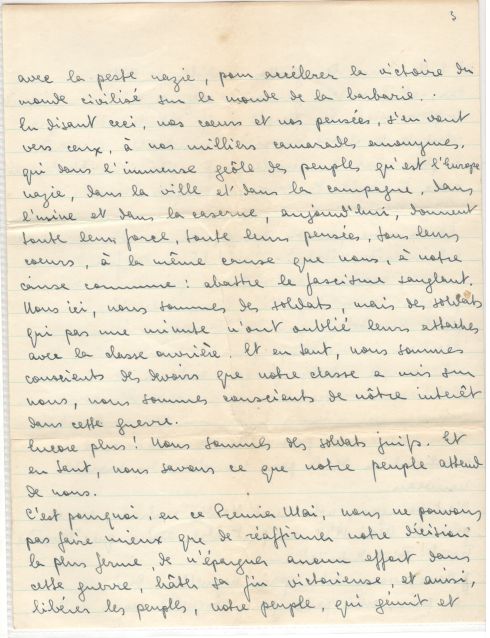 3
avec la peste nazie, pour accélérer la victoire du
monde civilisé sur le monde de la barbarie.
En disant ceci, nos coeurs et nos pensées, s'en vont
vers ceux, à nos milliers camarades anonymes,
qui dans l'immense geôle des peuples qu'est l'Europe
nazie, dans la ville et dans la campagne, dans
l'usine et dans la caserne, aujourd'hui, donnent
toute leur force, toute leurs pensées, tous leurs
coeurs, à la même cause que nous, à notre
cause commune : abattre le fascisme sanglant.
Nous ici, nous sommes des soldats, mais des soldats
qui pas une minute n'ont oublié leurs attaches
avec la classe ouvrière. Et en tant, nous sommes
conscients des devoirs que notre classe a mis sur
nous, nous sommes conscients de nôtre interêt
dans cette guerre.
Encore plus! Nous sommes des soldats juifs. Et
en tant, nous savons ce que notre peuple attend
de nous.
C'est pourquoi, en ce Premier Mai, nous ne pouvons
pas faire mieux que de réaffirmer notre décision
la plus ferme, de n'épargner aucun effort dans
cette guerre, hâter sa fin victorieuse, et ainsi,
libérer les peuples, notre peuple, qui gémit et